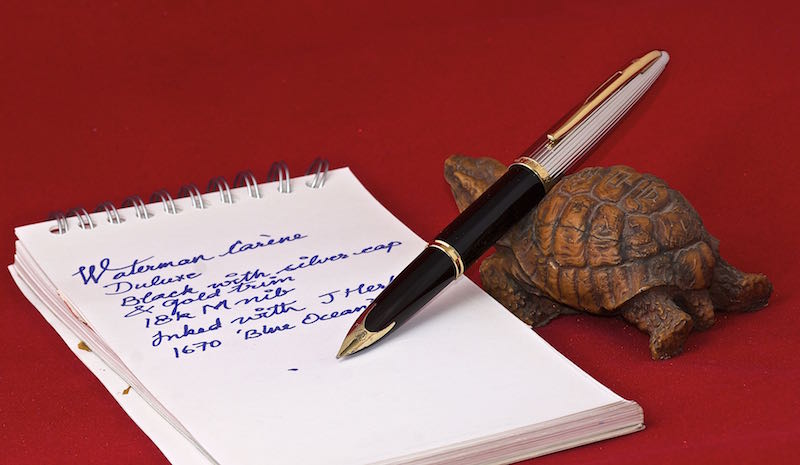 Waterman Carène
Duluxe
Black with silver cap
& gold trim
18k M nib
Inked with J Her
1670 'Blue Ocean